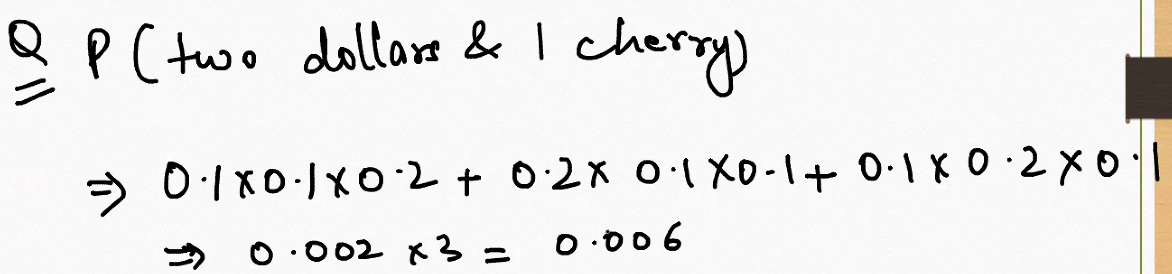 Q P (two dollars & 1 cherry)
⇒ 0.1x0.1x0.2 + 0.2x 0.1x0.1+ 0.1x0.2x0.1
⇒ 0.002 x3 = 0.006